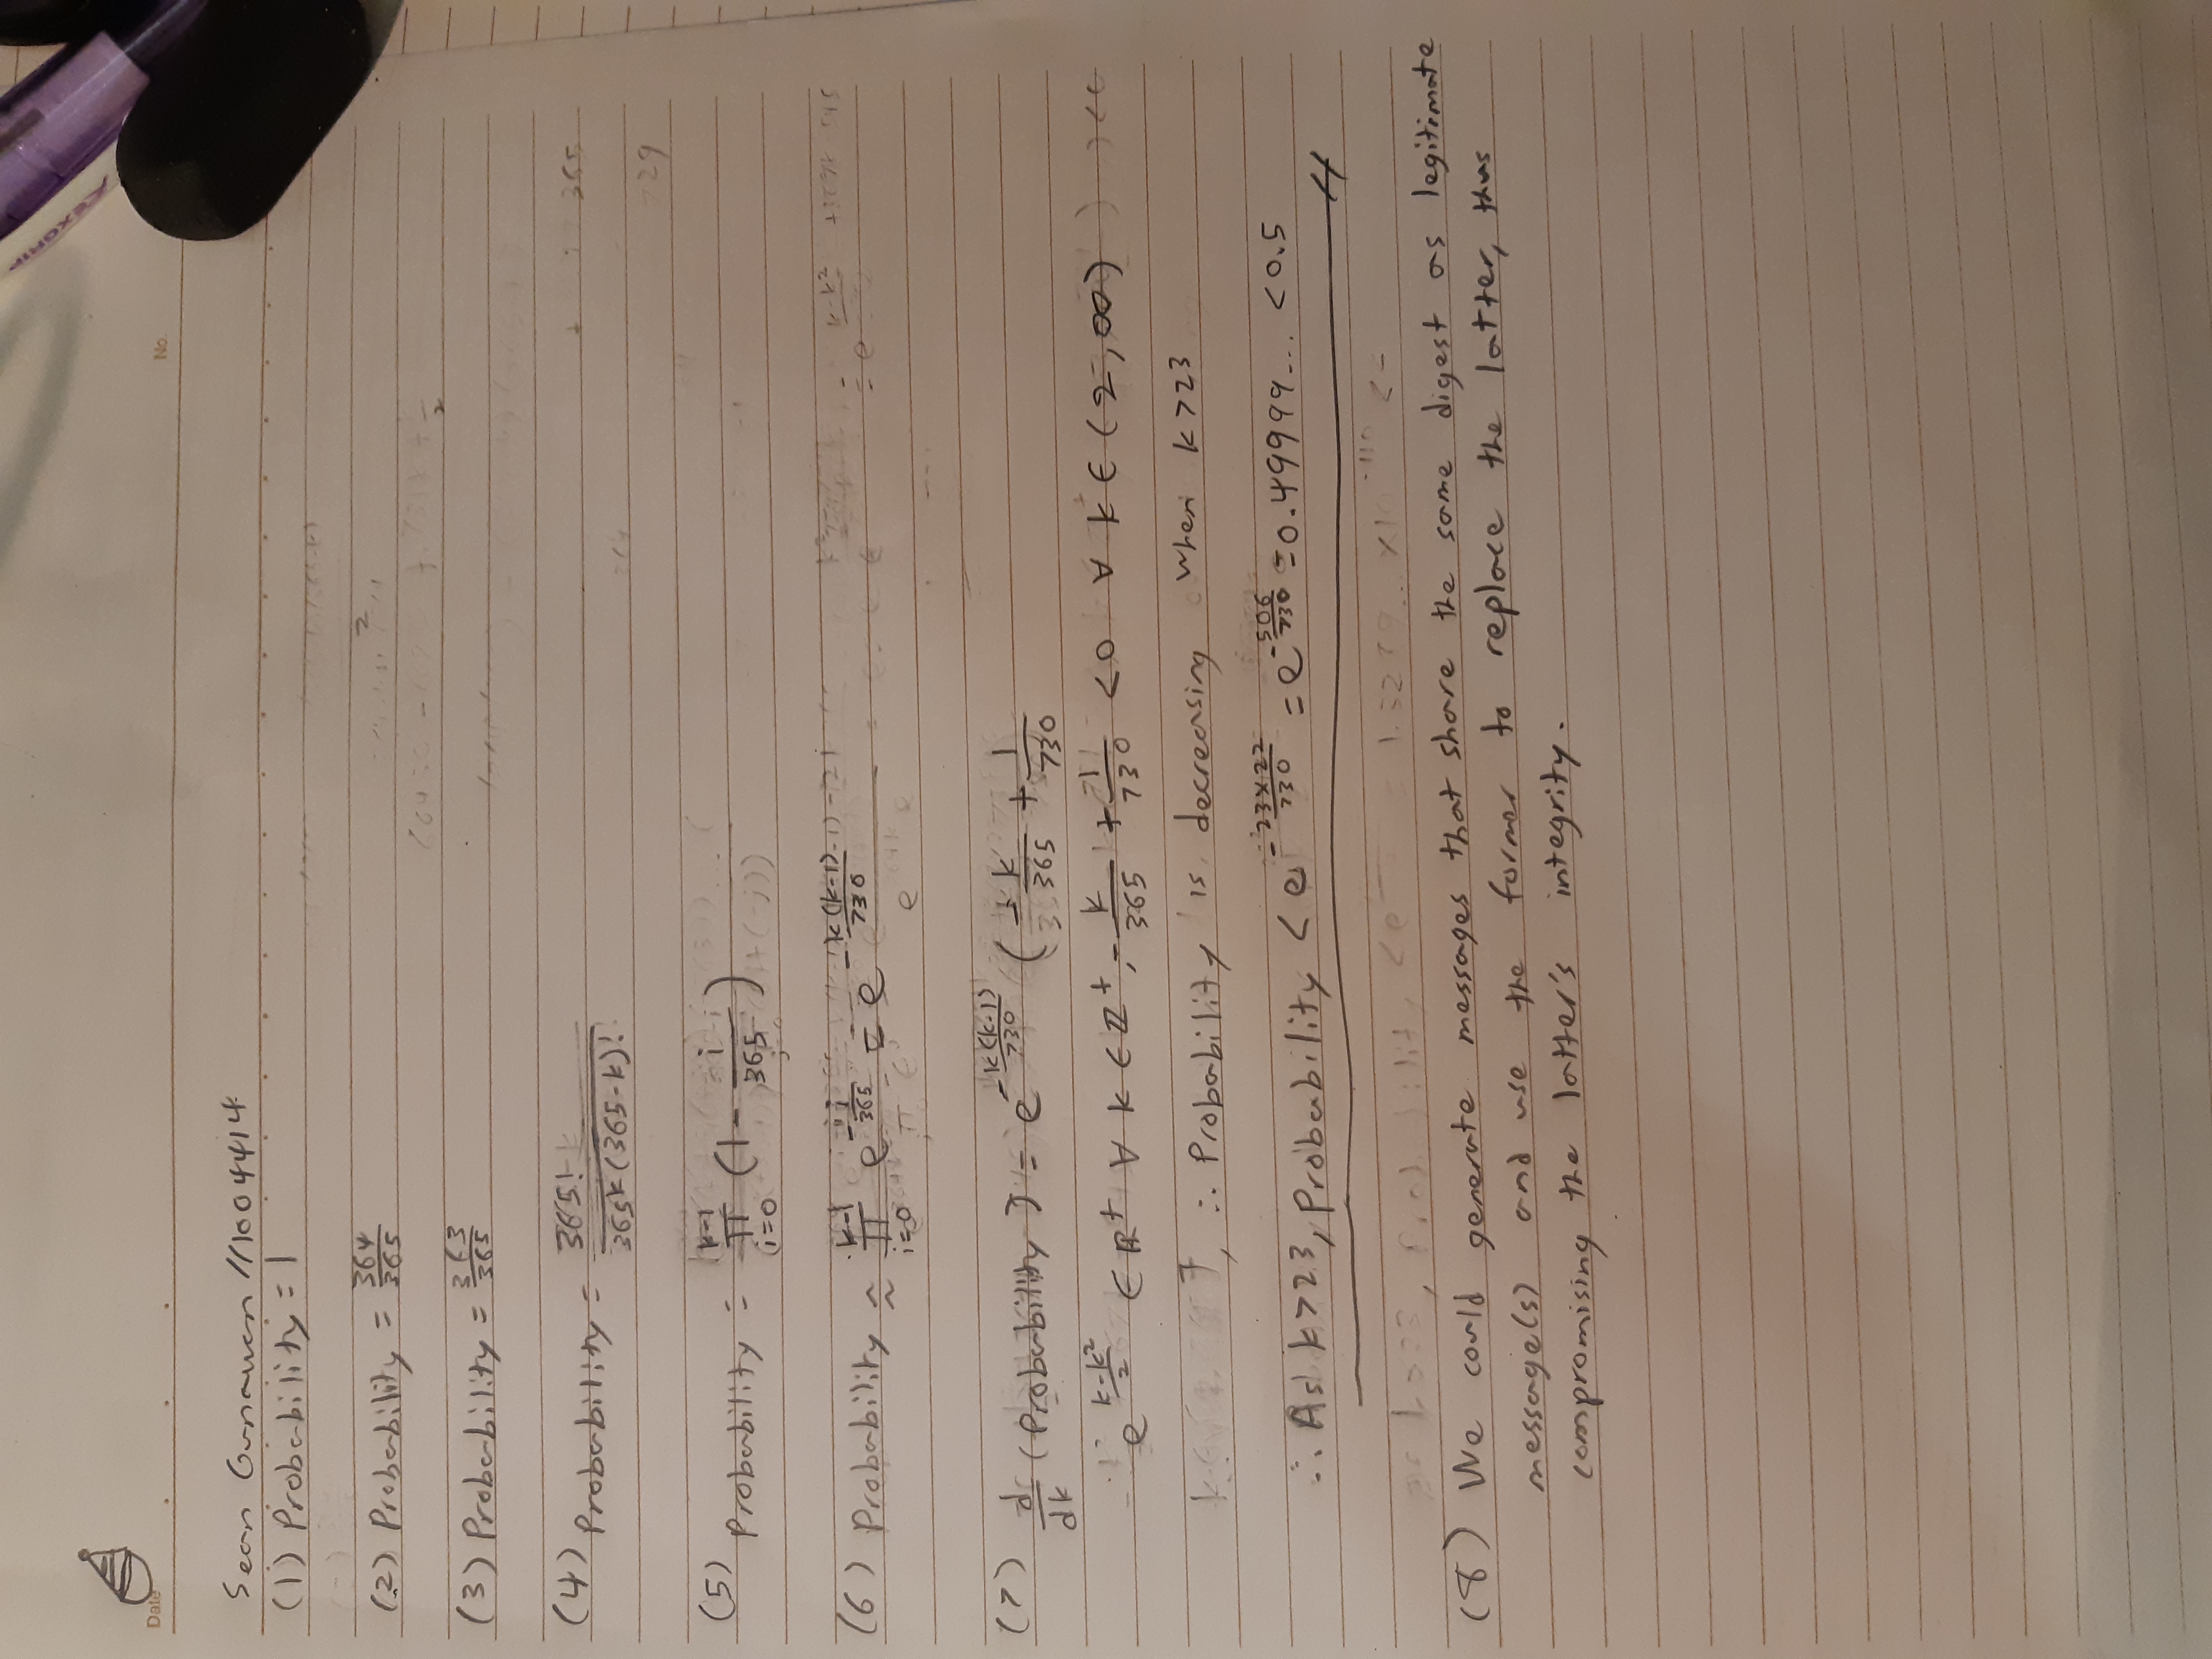 FLEXGRIP
Date
No.
Sean Gunawan //1004414
(1) Probability = 1
(2) Probability = 364/365
(3) Probability = 363/365
(4) Probability = 365!/365^k(365-k)!
(5) Probability = ∏_{i=0}^{k-1} (1 - i/365)
(6) Probability ≈ ∏_{i=0}^{k-1} e^{-i/365} = e^{-k(k-1)/730}
(7) d/dk (Probability) = e^{-k(k-1)/730} (-k/365 + 1/730
∵ e^{(k-k²)/2} ∈ ℝ⁺ ∀ k ∈ ℤ⁺, -k/365 + 1/730 < 0 ∀ k ∈ (2,∞)
∴ Probability is decreasing when k > 23
∴ As k > 23, Probability < e^{-23×22/730} = e^{-506/730} = 0.49999... < 0.5
(8) We could generate messages that share the same digest as legitimate
message(s) and use the former to replace the latter, thus
compromising the latter's integrity.